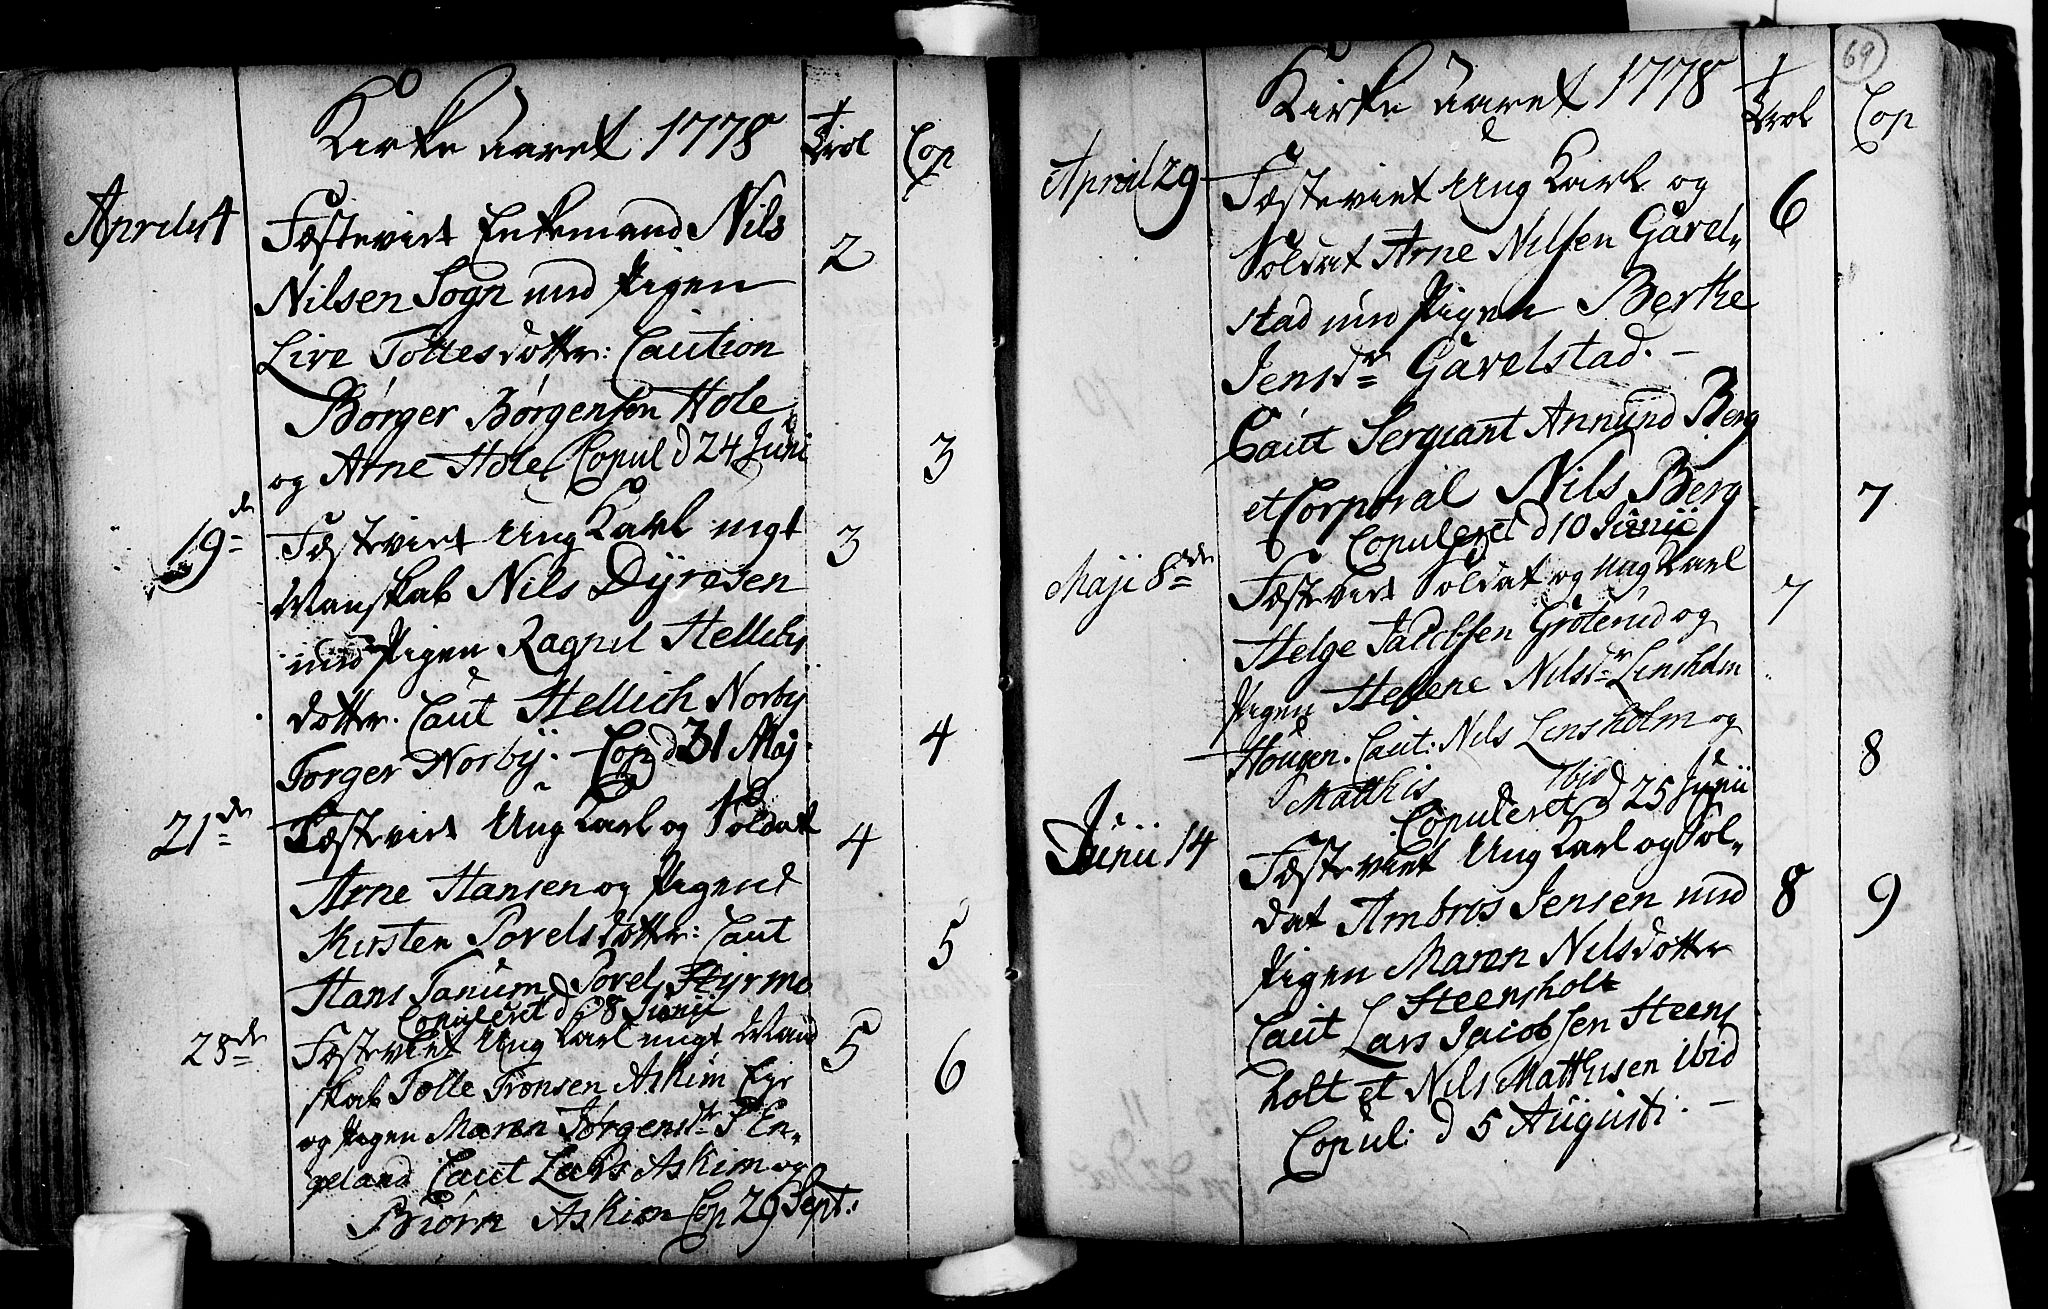 Kirke aaret 1778
Trol
Cop
Aprilis 4
Fæstevirt Enkemand Nils
2
Nilsen Sogn med Pigen
Live Tollesdotter: Caution
Børger Børgensen Hole
og Arne Hole Copul d 24 Juni
3
19de
Fæstevirt Ung Karl megt
3
Manskab Nils Dyresen
med Pigen Ragnil Hellichs
dotter. Caut Hellich Norby
Torger Norby. Cop d 31 Maj
4
21de
Fæstevirt Ung Karl og Soldat
4
Arne Hansen og Pigen
Kirsten Povelsdotter: Caut
5
Hans Tanum Povel Styrmo
Copuleret d 28 Junii
28de
Fæstevirt Ung Karl megt Mand
5
skab Tolle Tronsen Askim Eje
6
og Pigen Maren Jørgensdr En-
geland Caut Lars Askim og
Biørn Askim Cop 29 Sept:
69
Kirke aaret 1778
Trol
Cop
April 29
Fæstevirt Ung Karl og
6
Soldat Arne Nilsen Gavel-
stad med Pigen Berthe
Jensdr Gavelstad. -
Caut Sergeant Annund Berg
et Corporal Nils Berg
7
Copuleret d 10 Junii
Maji 8de
Fæstevirt Soldat og ung Karl
7
Helge Jacobsen Groterud og
Pigen Hellene Nilsdr Linsholm
Hougen. Caut: Nils Linsholm og
8
Matthis Ibid
Copuleret d 25 Junii
Junii 14
Fæstevirt Ung Karl og Sol-
dat Ambros Jensen med
8
9
Pigen Maren Nilsdotter
Steensholt
Caut Lars Jacobsen Steens
holt et Nils Mathisen ibid
Copul: d 5 Augusti. -